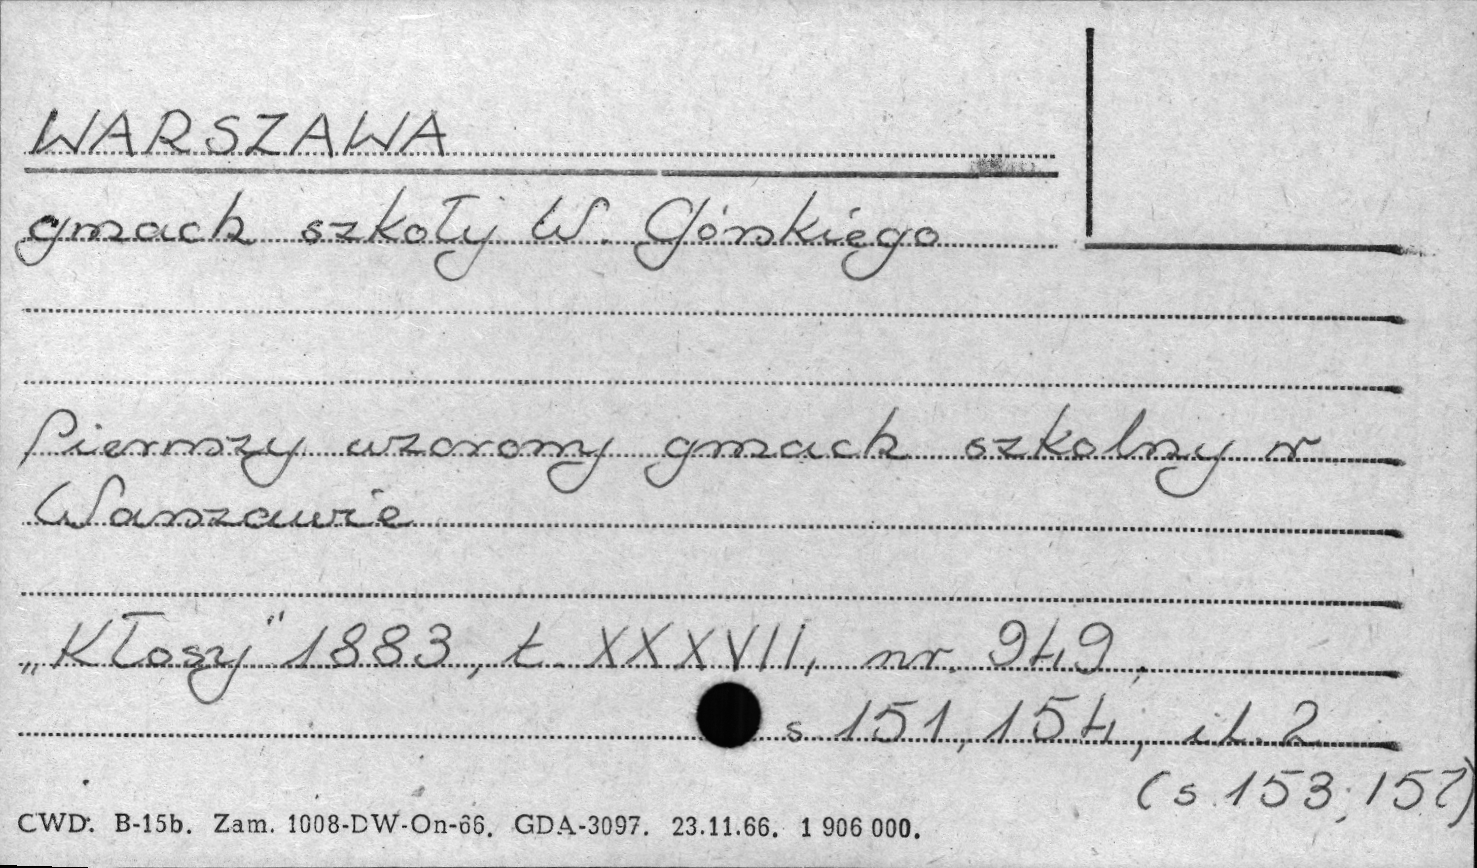 WARSZAWA
gmach szkoły W. Górskiego
Pierwszy wzorowy gmach szkolny w
Warszawie
„Kłosy" 1883, t. XXXVII, nr. 949,
s 151, 154, il. 2
(s 153,
CWD. B-15b. Zam. 1008-DW-On-66. GDA-3097. 23.11.66. 1 906 000.